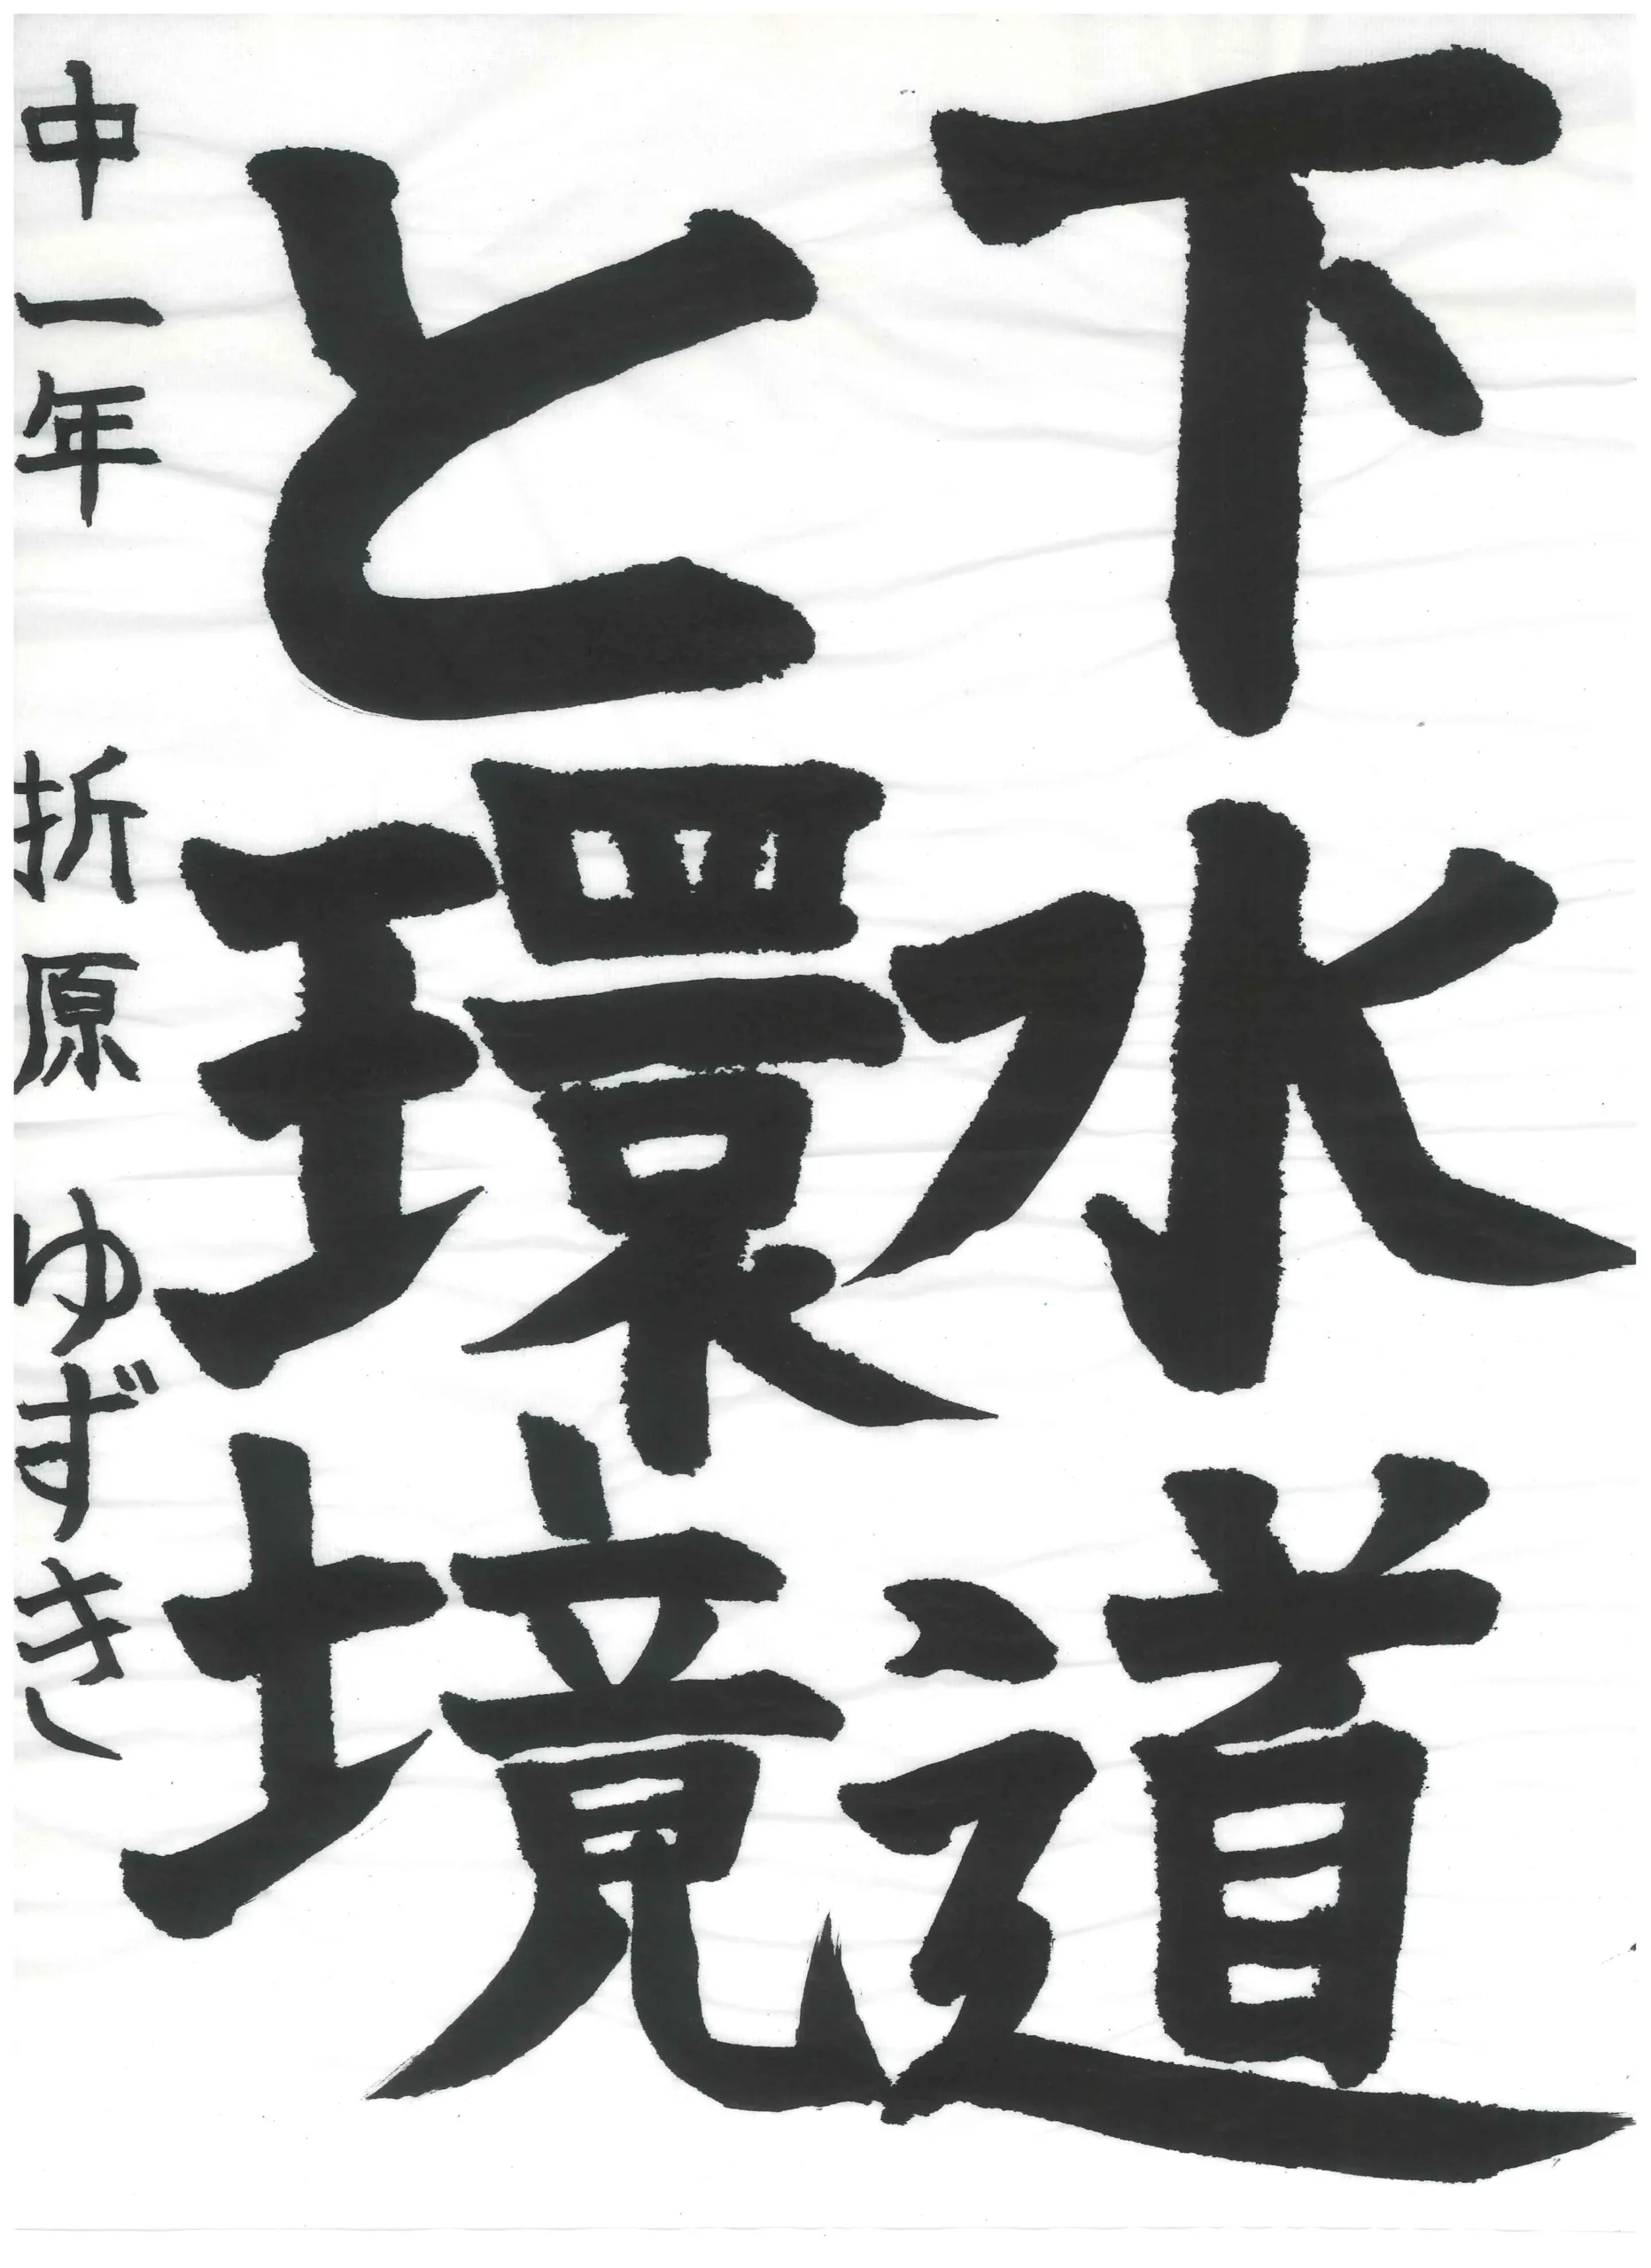 下水道
と環境
中一年 折原 ゆずき